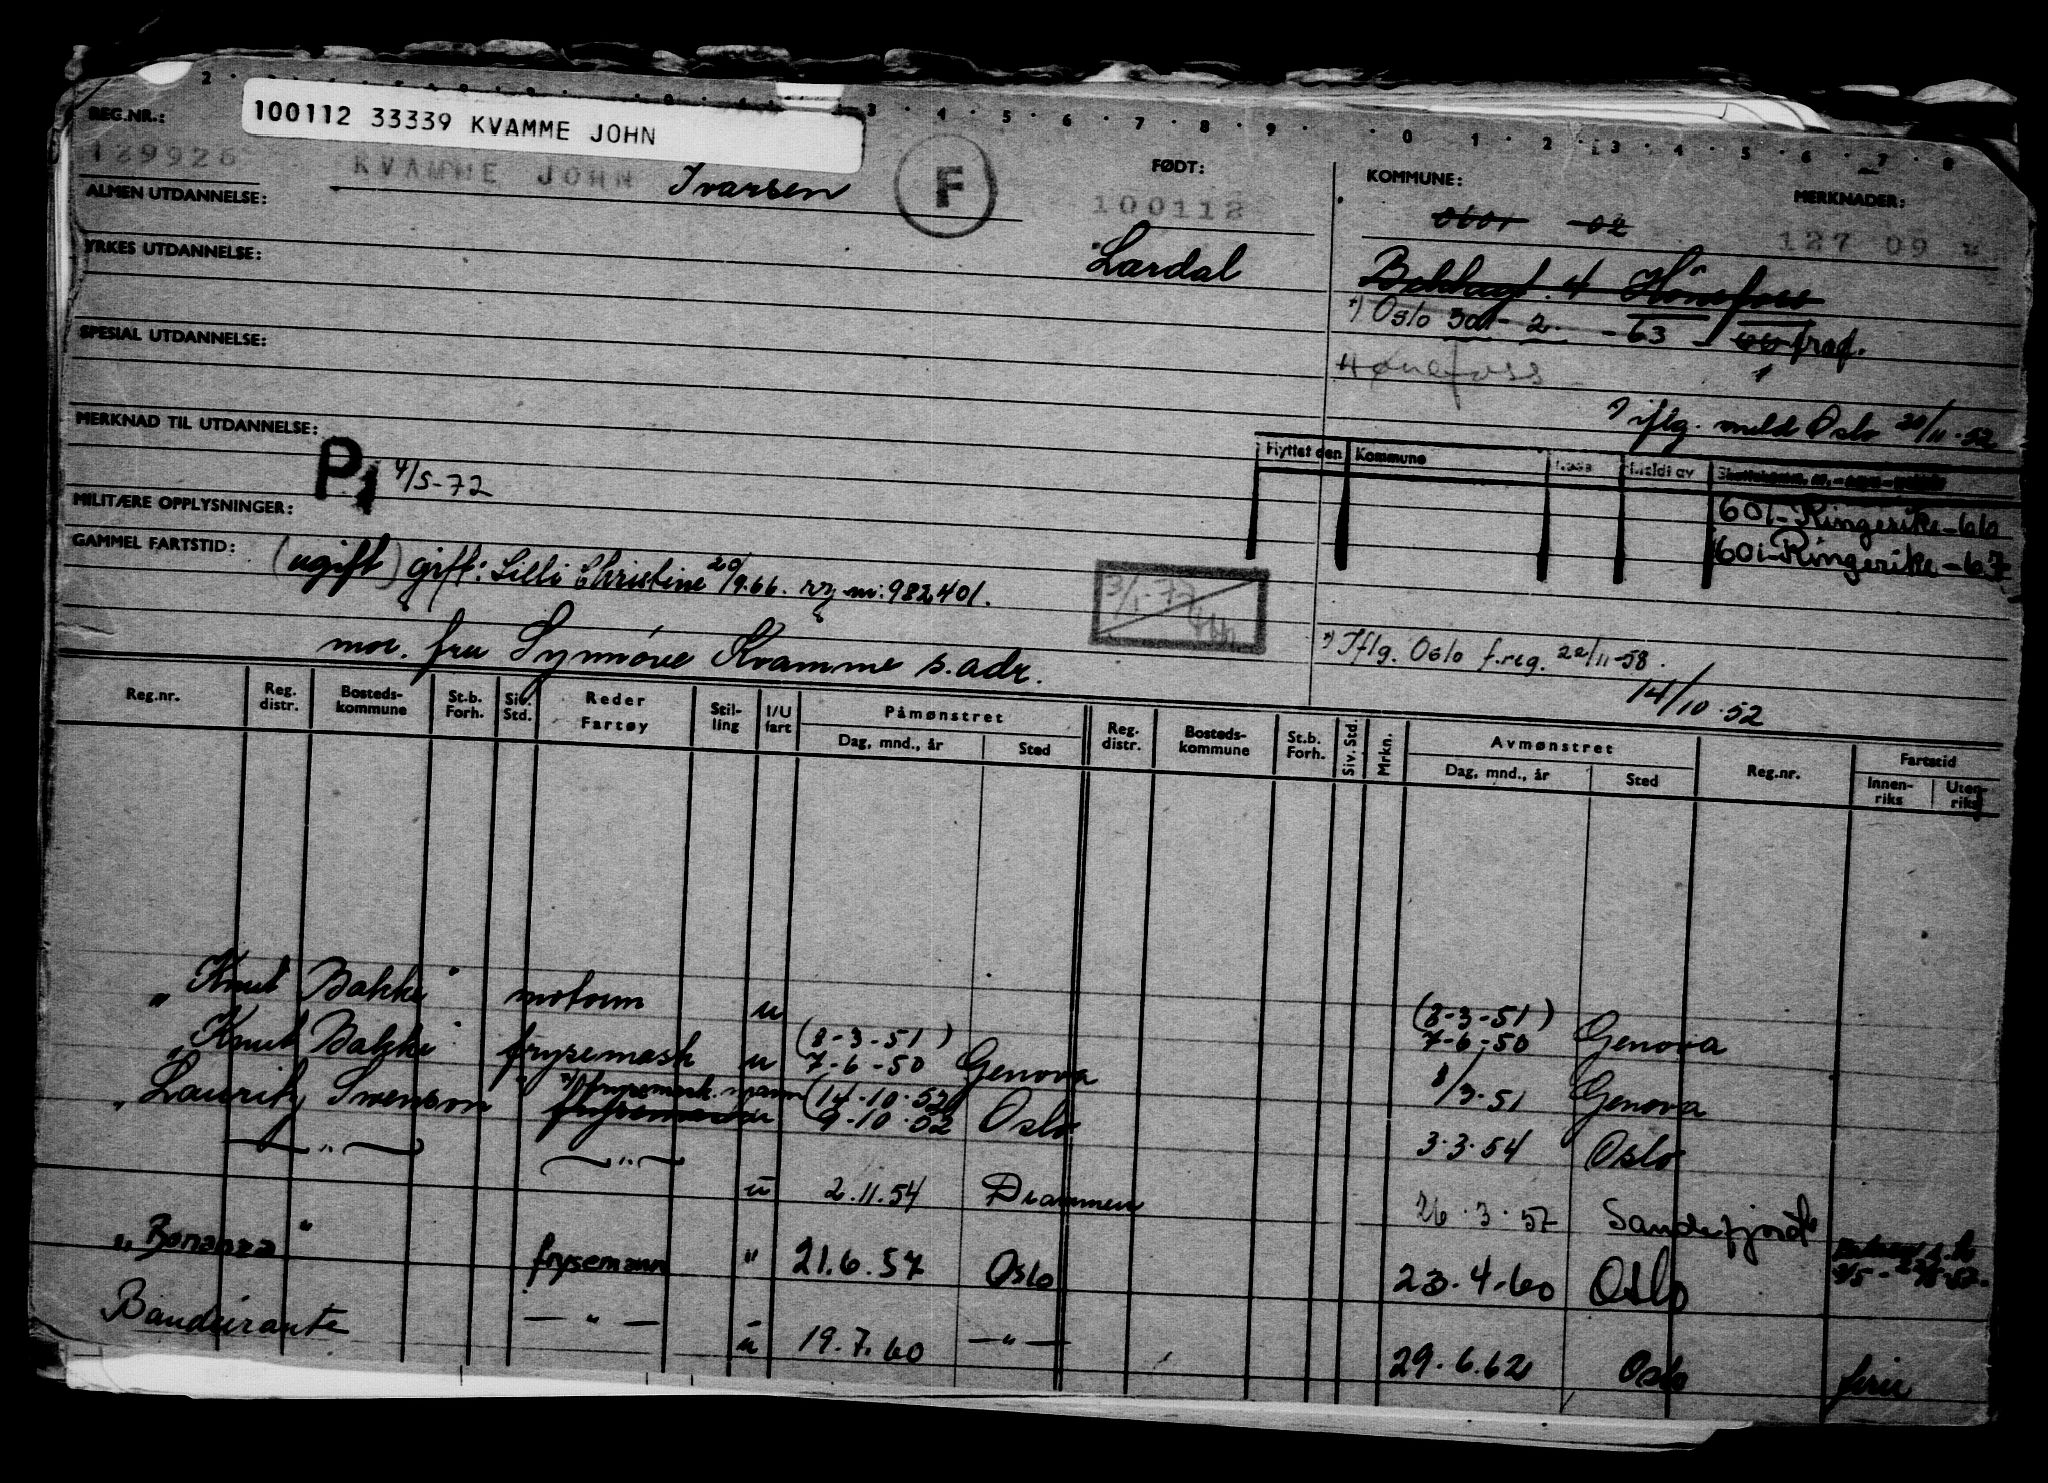 100112 33339 KVAMME JOHN
REG.NR.:
129926
KVAMME JOHN Ivarsen
F
FØDT:
100112
Lærdal
KOMMUNE:
0601 02
MERKNADER:
127 09
Hönefoss
Oslo 301 - 2 - 63
Hønefoss
iflg. meld Oslo 20/11.52
ALMEN UTDANNELSE:
YRKES UTDANNELSE:
SPESIAL UTDANNELSE:
MERKNAD TIL UTDANNELSE:
P1 4/5-72
MILITÆRE OPPLYSNINGER:
GAMMEL FARTSTID:
Flyttet den Kommune Meldt av
601-Ringerike-66
601-Ringerike-67
(ugift) gift: Lilli Christine 20/9.66. rg nr: 982401.
3/1-77
mor. fru Synnöve Kvamme s.adr.
Iflg. Oslo f.reg. 22/11-58.
14/10.52
Reg.nr. Reg. distr. Bosteds-kommune St.b. Forh. Siv. Std. Reder Fartøy Stil-ling I/U fart Påmønstret Dag, mnd., år Sted Reg. distr. Bosteds-kommune St.b. Forh. Siv. Std. Mrkn. Avmønstret Dag, mnd., år Sted Reg.nr. Fartstid Innen-riks Uten-riks
"Knut Bakke" motorm u (8-3-51) 7-6-50 Genova
"Knut Bakke" frysemask u (8-3-51) 7-6-50 Genova 8/3.51 Genova
"Lauritz Svenson" frysemask. mann (14.10.52) 9.10.52 Oslo 3.3.54 Oslo
— " — — " — u 2.11.54 Drammen 26.3.57 Sandefjord
"Bonanza" frysemann " 21.6.57 Oslo 23.4.60 Oslo
Bandeirante — " — u 19.7.60 — " — 29.6.62 Oslo ferie